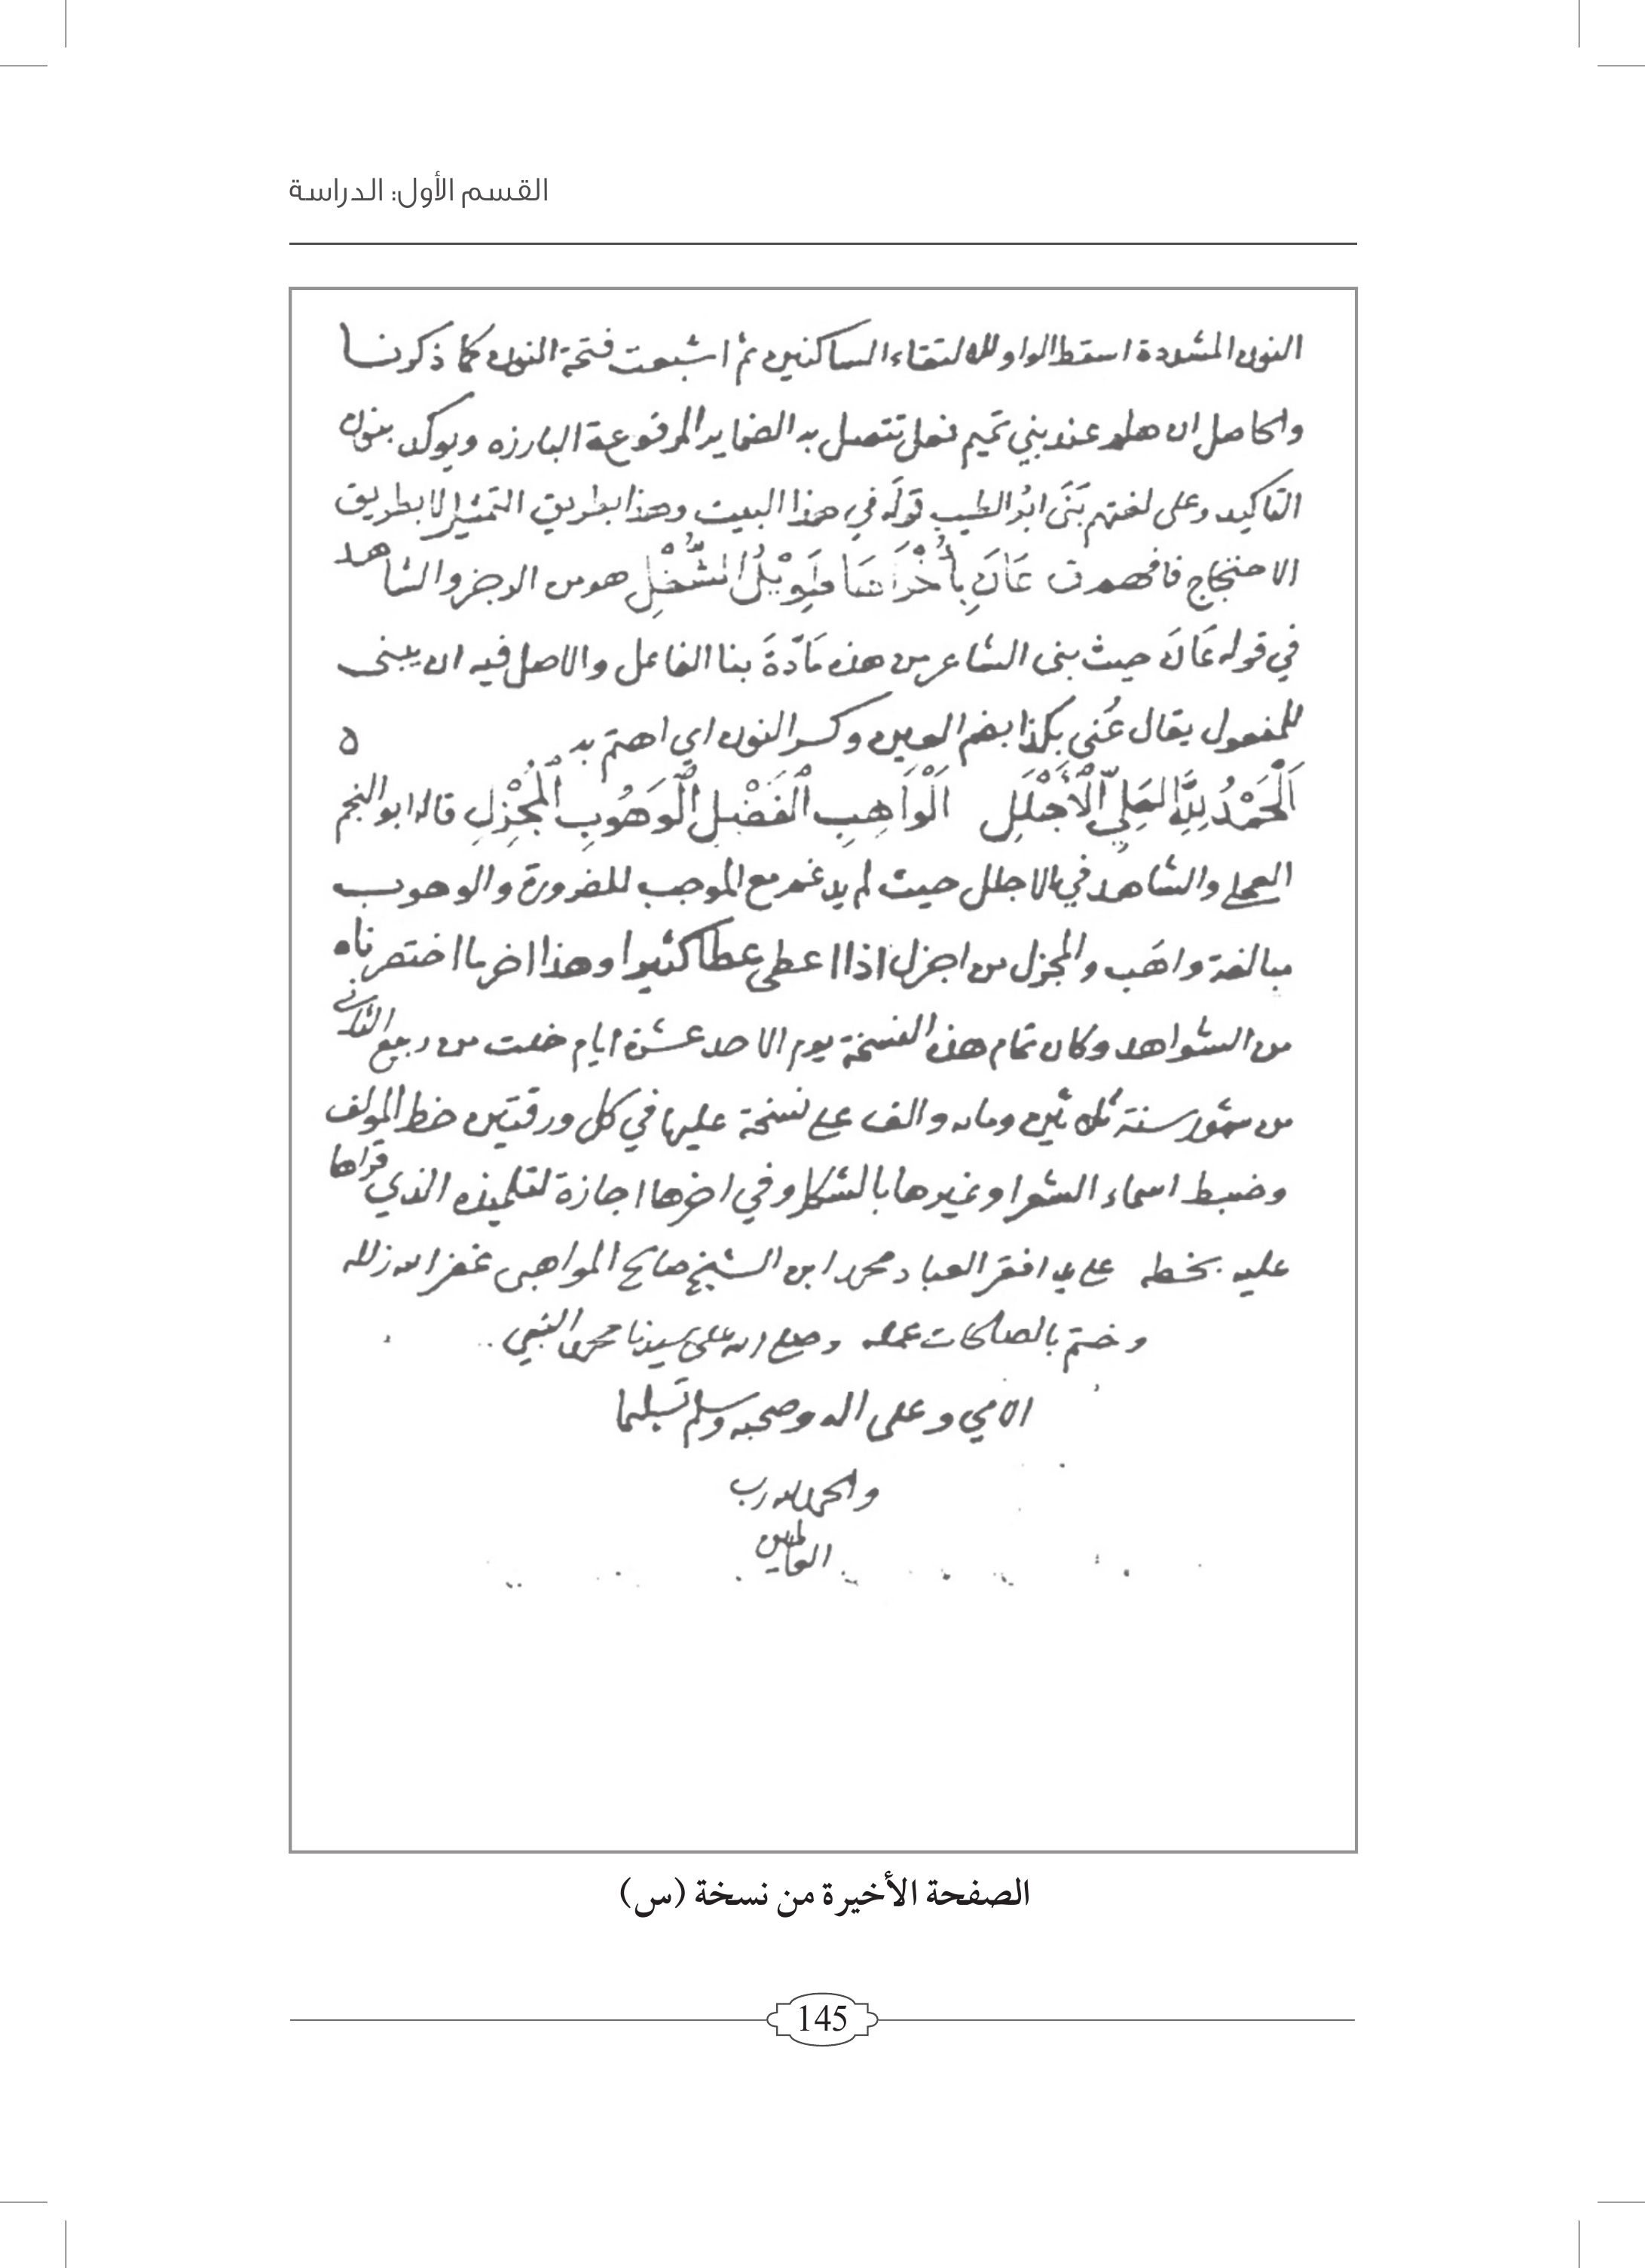 القسم الأول: الدراسة
النون المشددة اسقط الواو للالتقاء الساكنين ثم اشبعت فتحة النون كما ذكرنا
والحاصل ان هلم عند بني تميم فعل تتصل به الضماير المرفوعة البارزه ويوكد بنون
التاكيد وعلى لغتهم بَنَى ابُو الطيب قولَه في هذا البيت وهذا بطريق التمثيل لا بطريق
الاحتجاج فافهم ق عَانَ بِأُخْرَاهَا طَوِيْلُ الشُّغْلِ هو من الرجز والشاهد
في قوله عَانَ حيث بنى الشاعر من هذه مَادّةَ بنا الفاعل والاصل فيه ان يبنى
للمفعول يقال عُني بكذا بضم العين وكسر النون اي اهتم به ٥
اَلْحَمْدُ لِلَّهِ العَلِيِّ الْأَجْلَلِ اَلْوَاهِبِ الْفَضْلِ الْوَهُوبِ الْمُجْزِلِ قاله ابو النجم
العجلي والشاهد في الاجلل حيث لم يدغم مع الموجب للضرورة والوهوب
مبالغة واهَب والمجزل من اجزل اذا اعطى عطا كثيرا وهذا اخر ما اختصرناه
من الشواهد وكان تمام هذه النسخة يوم الاحد عشرة ايام خلت من ربيع الثاني
من شهور سنة ثلاثين ومايه والف على نسخة عليها في كل ورقتين خط المولف
وضبط اسماء الشعرا وغيرها بالشكل وفي اخرها اجازة لتلميذه الذي قراها
عليه بخطه على يد افقر العباد محمد ابن الشيخ صالح المواهبي غفر الله زلله
وختم بالصالحات عمله وصلى الله على سيدنا محمد النبي
الامي وعلى اله وصحبه وسلم تسليما
والحمد لله رب
العالمين
الصفحة الأخيرة من نسخة (س)
145